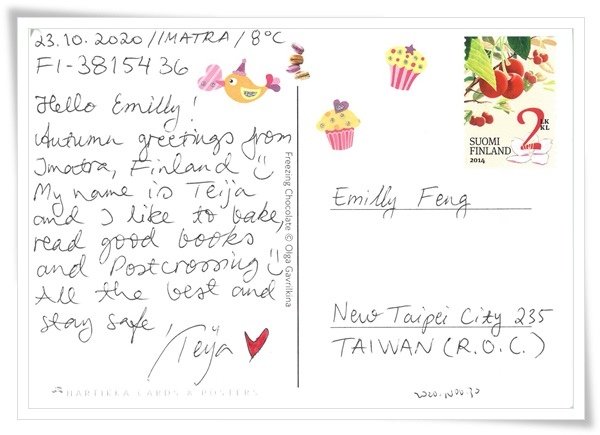 23.10.2020//IMATRA/8°C
FI-3815436
Hello Emilly!
Autumn greetings from
Imatra, Finland
My name is Teija
and I like to bake,
read good books
and Postcrossing
All the best and
stay safe,
Teija
Freezing Chocolate © Olga Gavrilkina
KARTIEKA CARDS & POSTERS
2 LK
KL
SUOMI
FINLAND
2014
Emilly Feng
New Taipei City 235
TAIWAN (R.O.C.)
2020.NOV.30